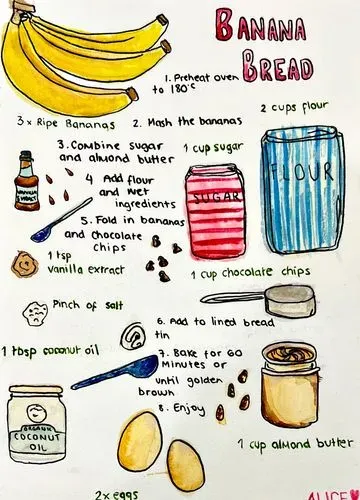 BANANA
BREAD
1. Preheat oven
to 180°C
3x Ripe Bananas
2. Mash the bananas
2 cups flour
3. Combine sugar
and almond butter
1 cup sugar
FLOUR
SUGAR
4 Add flour
and wet
ingredients
VANILLA
5. Fold in bananas
and chocolate
chips
1 tsp
vanilla extract
1 cup chocolate chips
Pinch of salt
6. Add to lined bread
tin
1 tbsp coconut oil
7. Bake for 60
minutes or
until golden
brown
8. Enjoy
ORGANIC
COCONUT
OIL
1 cup almond butter
2x eggs
ALICE